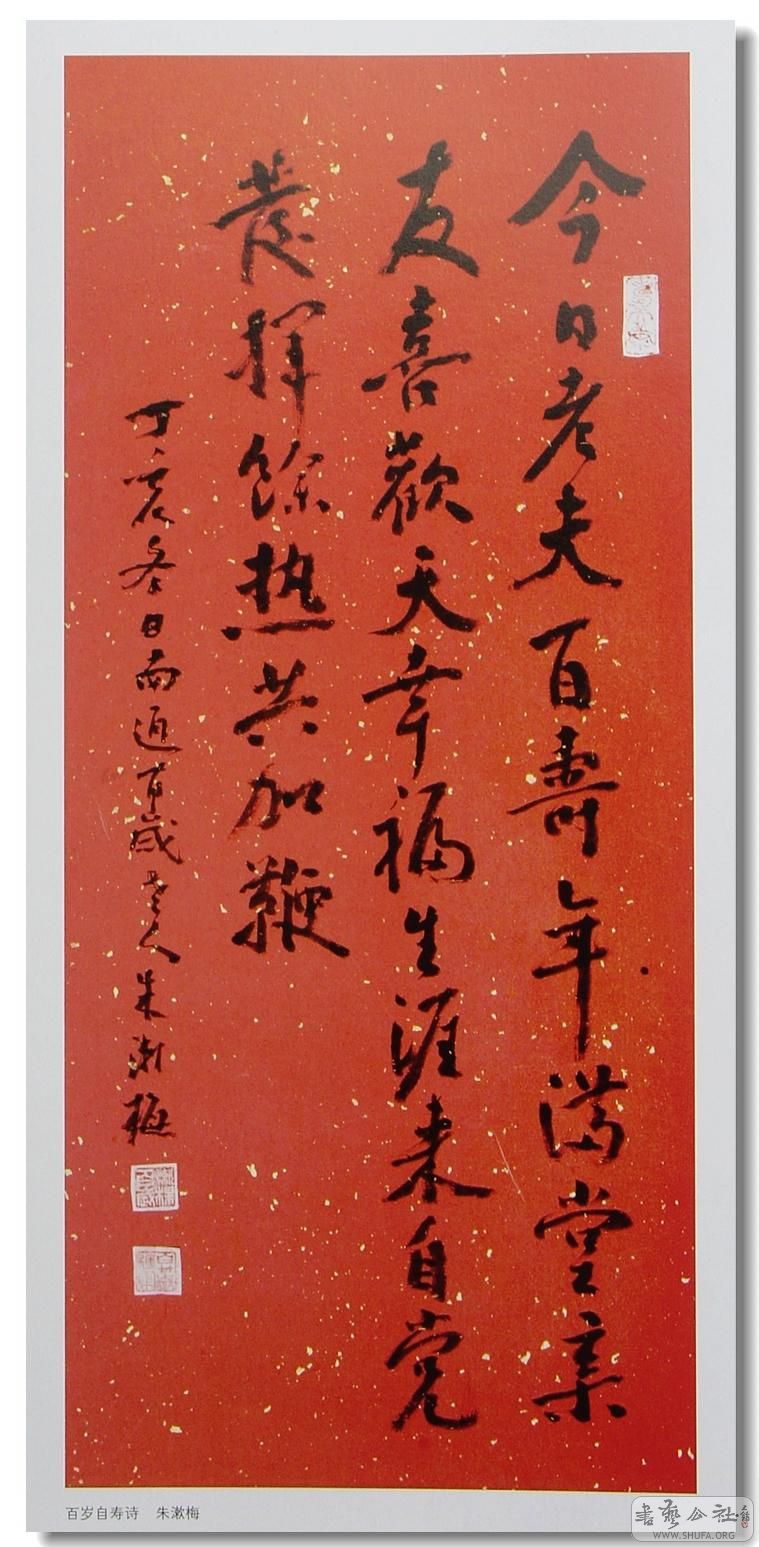 今日老夫百壽年満堂亲
友喜歡天幸福生涯来自党
發揮餘热共加鞭
丁亥冬日南通百歲老人朱漱梅
百岁自寿诗 朱漱梅
書藝公社
WWW.SHUFA.ORG